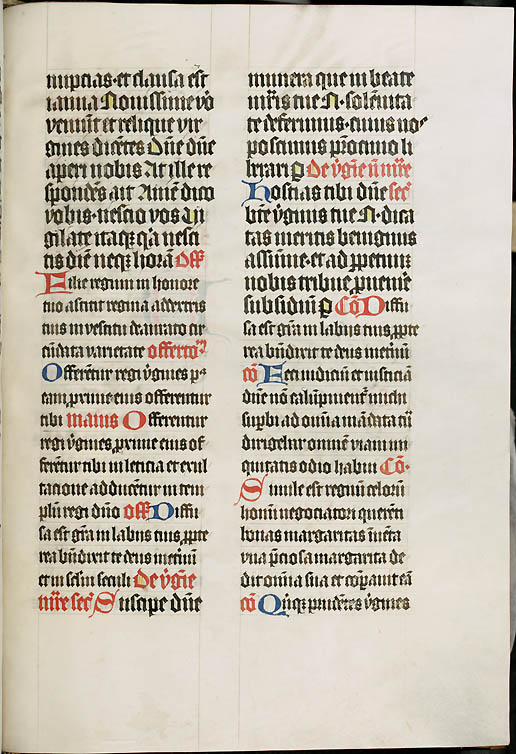 nuptias·et clausa est
ianua Nouissime vo
veniūt et relique vir
gines dicētes Dn̄e dn̄e
aperi nobis At ille re
spondēs ait Amē dico
vobis·nescio vos Ui
gilate itaqꝫ q̄a nesci
tis diē neqꝫ horā Off̄
Filie regum in honore
tuo astitit regina a dextris
tuis in vestitu deaurato cir
cūdata varietate offerto
Offerētur regi v̄gines p
eam proxime eius offerentur
tibi maius Offerentur
regi v̄gines proxime eius of
ferētur tibi in leticia et exul
tacione adducētur in tem
plū regi dn̄o off̄ Diffu
sa est gr̄a in labiis tuis ꝓpte
rea bn̄dixit te deus in et̄nū
et in sc̄lm seculi De v̄gīe
mr̄e sec̄ Suscipe dn̄e
munera que in beate
mr̄is tue N· solēnita
te deferimus·cuius no
poscimus pr̄ocinio li
berari ꝑ De v̄gīe n̄ mr̄e
Hostias tibi dn̄e sec̄
bt̄e v̄ginis tue N· dica
tas meritis benignus
assūme·et ad ꝑpetuū
nobis tribue puenire
subsidiū ꝑ Cō Diffu
sa est gr̄a in labiis tuis ꝓpte
rea bn̄dixit te deus in et̄nū
cō Feci iudiciū et iusticiā
dn̄e nō calūpnient̄ michi
supbi ad om̄ia mādata tua
dirigebar omnem viam ini
quitatis odio habui Cō·
Simile est regnū celorū
homī negociatori querēti
bonas margaritas īuēta
vna p̄ciosa margarita de
dit om̄ia sua et cōpauit eā
cō Quīqꝫ prudētes v̄gines